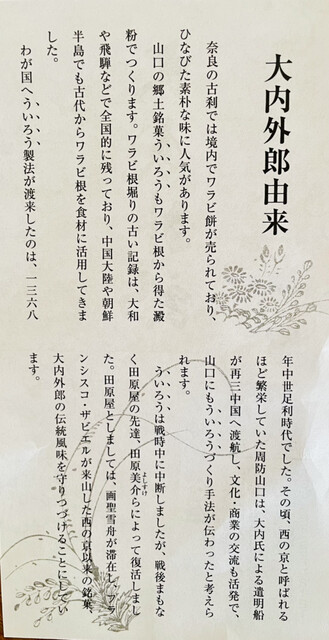 大内外郎由来
奈良の古刹では境内でワラビ餅が売られており、
ひなびた素朴な味に人気があります。
山口の郷土銘菓ういろうもワラビ根から得た澱
粉でつくります。ワラビ根堀りの古い記録は、大和
や飛騨などで全国的に残っており、中国大陸や朝鮮
半島でも古代からワラビ根を食材に活用してきま
した。
わが国へういろう製法が渡来したのは、一三六八
年中世足利時代でした。その頃、西の京と呼ばれる
ほど繁栄していた周防山口は、大内氏による遣明船
が再三中国へ渡航し、文化・商業の交流も活発で、
山口にもういろうづくり手法が伝わったと考えら
れます。
ういろうは戦時中に中断しましたが、戦後まもな
く田原屋の先達、田原美介らによって復活しまし
よしすけ
た。田原屋としましては、画聖雪舟が滞在し、フラ
ンシスコ・ザビエルが来山した西の京以来の銘菓、
大内外郎の伝統風味を守りつづけることにしてい
ます。